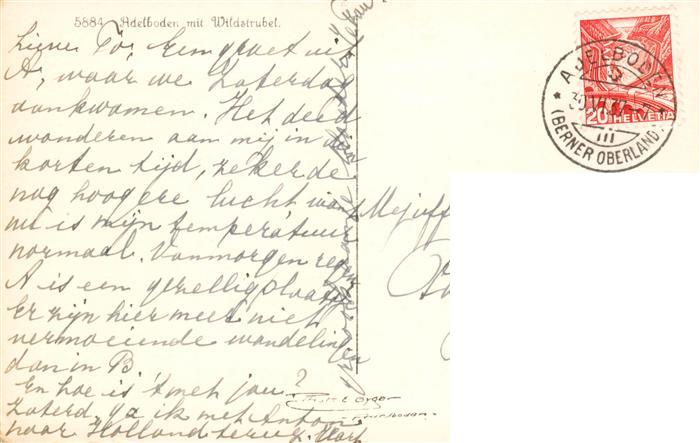 5884 Adelboden mit Wildstrubel.
Lieve To, Een groet uit
A, waar we Zaterdag
aankwamen. Het deed
wonderen aan mij in de
korten tijd, zeker de
nog hoogere lucht want
nu is mijn temperatuur
normaal. Vanmorgen regen
A is een gezellig plaatsje
Er zijn hier meer niet
vermoeiende wandelingen
dan in B.
En hoe is 't met jou?
Zaterd. ga ik met Anton
naar Holland terug. Hart
Mejuff
ADELBODEN
(BERNER OBERLAND)
20 HELVETIA